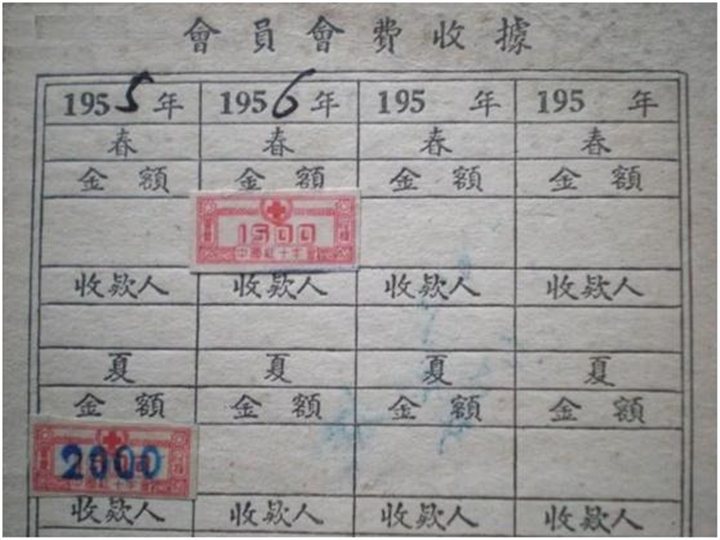 會員會費收據
1955年 1956年 195 年 195 年
春 春 春 春
金額 金額 金額 金額
1500
中國紅十字
收款人 收款人 收款人 收款人
夏 夏 夏 夏
金額 金額 金額 金額
2000
收款人 收款人 收款人 收款人